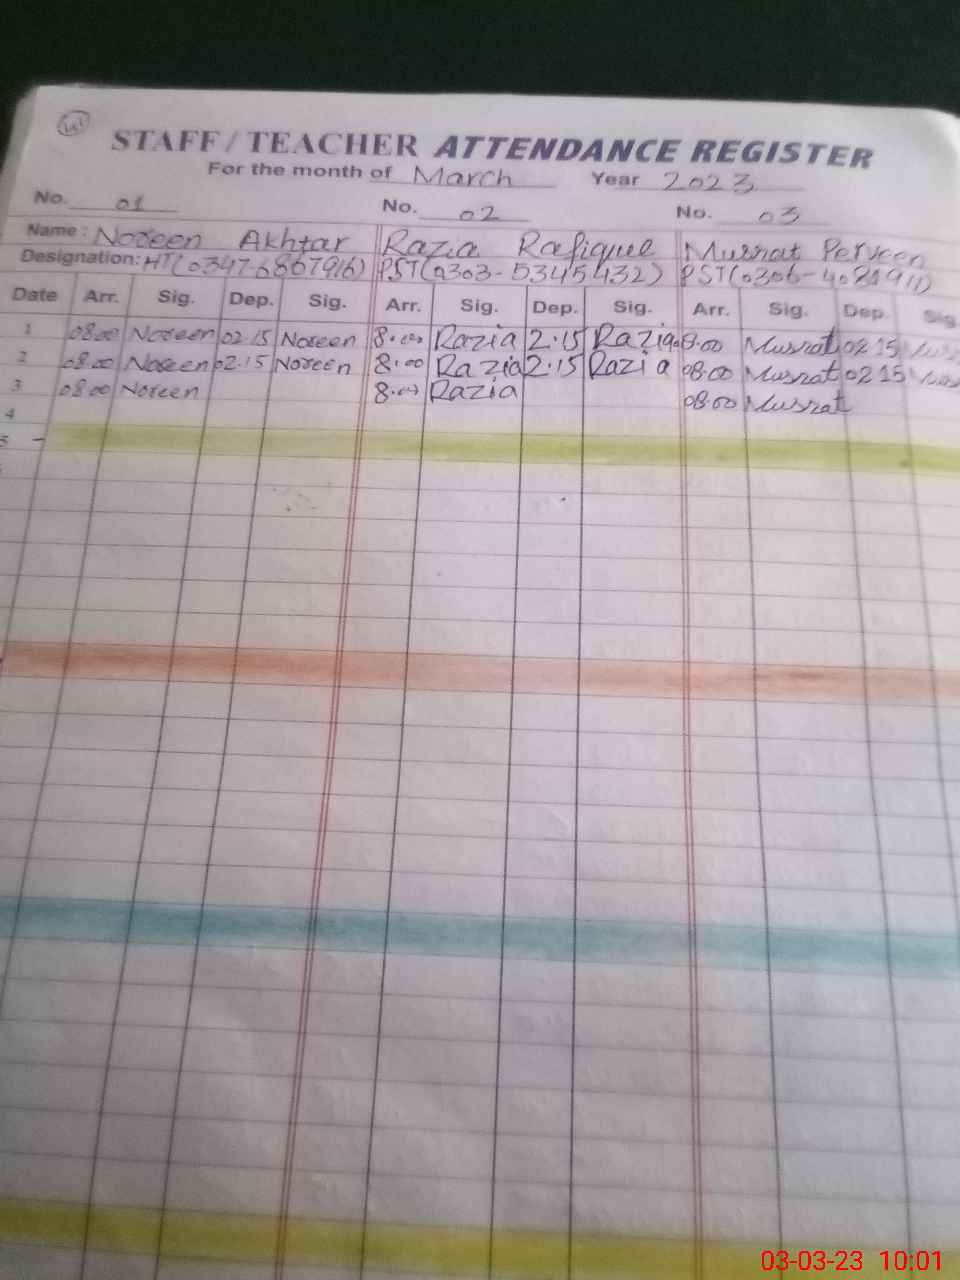 STAFF / TEACHER ATTENDANCE REGISTER
For the month of March Year 2023
No. 01 No. 02 No. 03
Name: Noreen Akhtar Razia Rafique Musrat Perveen
Designation: HT(0347-6867916) PST(0303-5345432) PST(0306-4081911)
Date Arr. Sig. Dep. Sig. Arr. Sig. Dep. Sig. Arr. Sig. Dep. Sig.
1 08:00 Noreen 02:15 Noreen 8:00 Razia 2:15 Razia 08:00 Musrat 02:15
2 08:00 Noreen 02:15 Noreen 8:00 Razia 2:15 Razia 08:00 Musrat 02:15
3 08:00 Noreen 8:00 Razia 08:00 Musrat
4
5
03-03-23 10:01